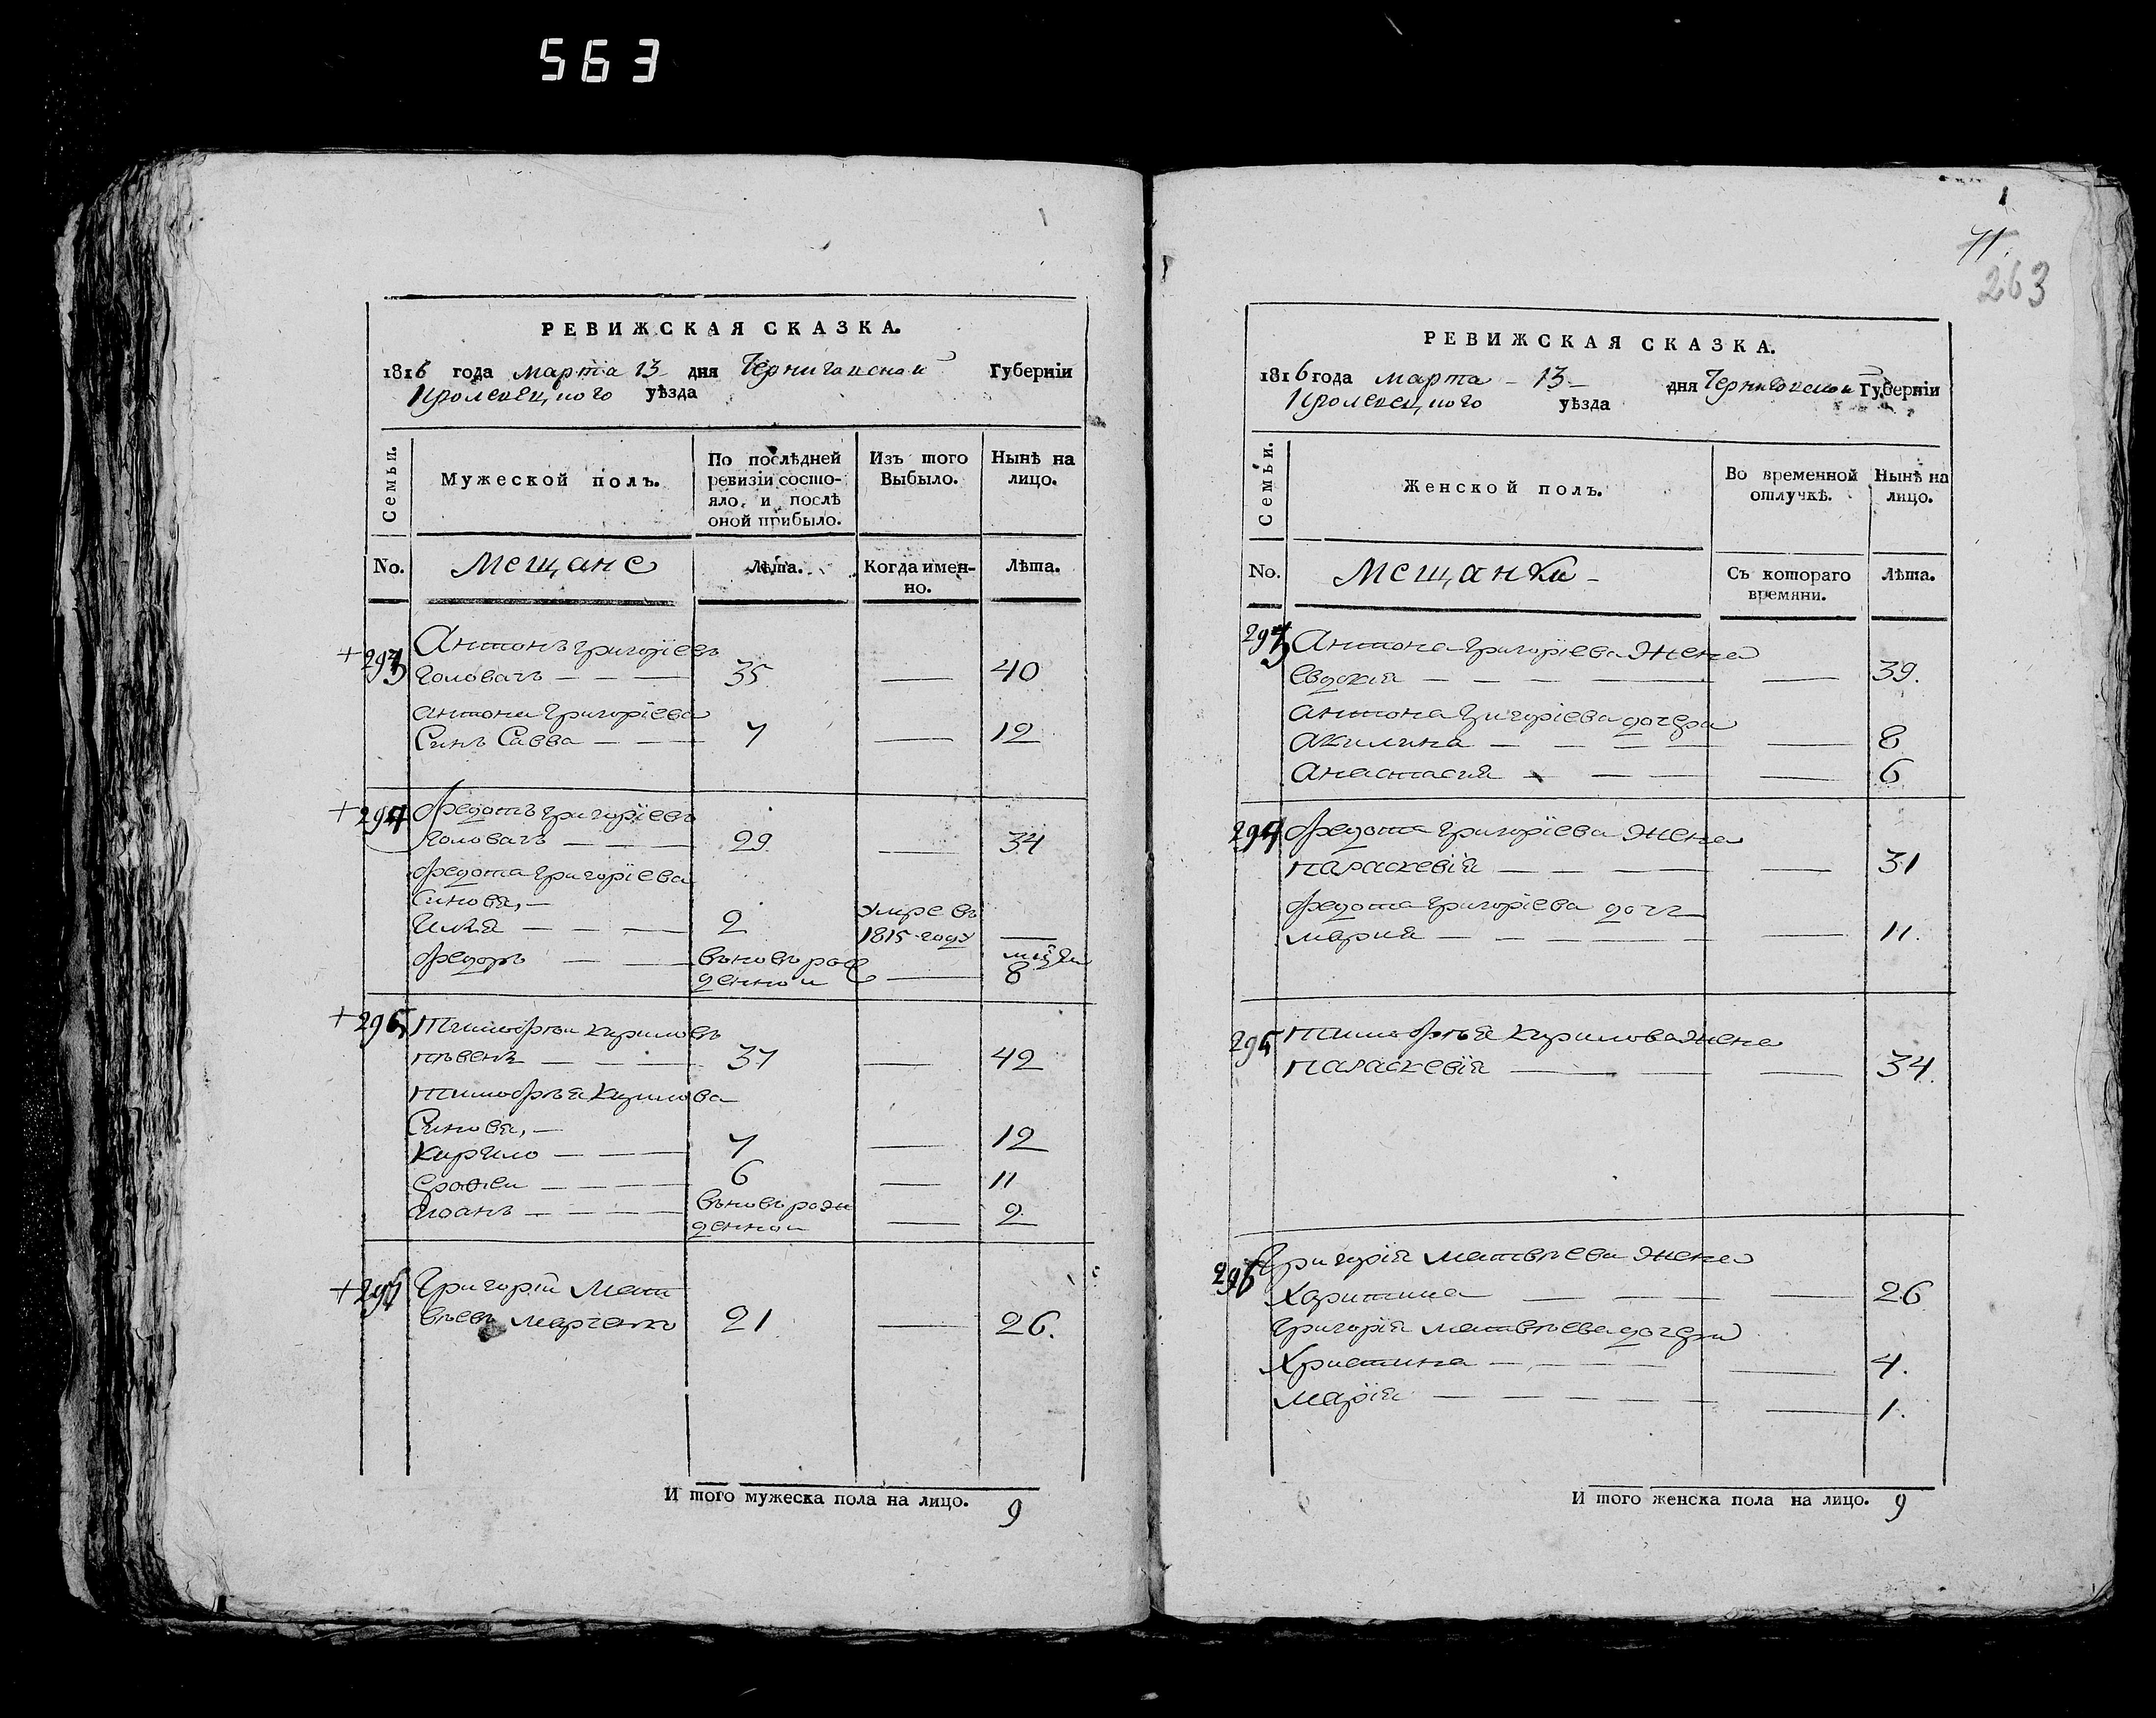 563
РЕВИЖСКАЯ СКАЗКА.
1816 года марта 13 дня Черниговской Губерніи
Кролевецкого уѣзда
Семьи.
Мужеской полъ.
По послѣдней ревизіи состо-
яло, и послѣ
оной прибыло.
Изъ того
Выбыло.
Нынѣ на
лицо.
No.
мещане
Лѣта.
Когда имен-
но.
Лѣта.
+293 Антонъ григоріевъ
головачъ — — — 35 — 40
антона григоріева
Синъ Савва — — 7 — 12
+294 Федотъ григоріевъ
головачъ — — — 29 — 34
Федота григоріева
Синовя, —
Илія — — — 2 умре въ
1815 году —
Федоръ — — вновь рож
денной — 8
+295 тимофѣи кириловъ
пѣвень — — — 37 — 42
тимофѣя кирилова
Синовя, —
кирило — — 7 — 12
— — — 6 — 11
Иоанъ — — — — вновь рож
денной — 2
+296 Григорій Мат
вѣевъ марченко 21 — 26.
И того мужеска пола на лицо. 9
71.
263
РЕВИЖСКАЯ СКАЗКА.
1816 года марта – 13 – дня Черниговской Губерніи
Кролевецкого уѣзда
Семьи.
Женской полъ.
Во временной
отлучкѣ.
Нынѣ на
лицо.
No.
мещанки –
Съ котораго
времяни.
Лѣта.
293 Антона григоріева жена
Евдокія — — — — — 39.
антона григоріева дочери
акилина — — — — — 8
анастасия — — — — 6
294 Федота григоріева жена
параскевія — — — — 31
Федота григоріева дочь
мария — — — — — 11.
295 тимофѣя кирилова жена
параскевія — — — — 34.
296 Григорія матвѣева жена
Харитина — — — — 26
григорія матвѣева дочери
Христина — — — — 4.
марія — — — — — 1.
И того женска пола на лицо. 9